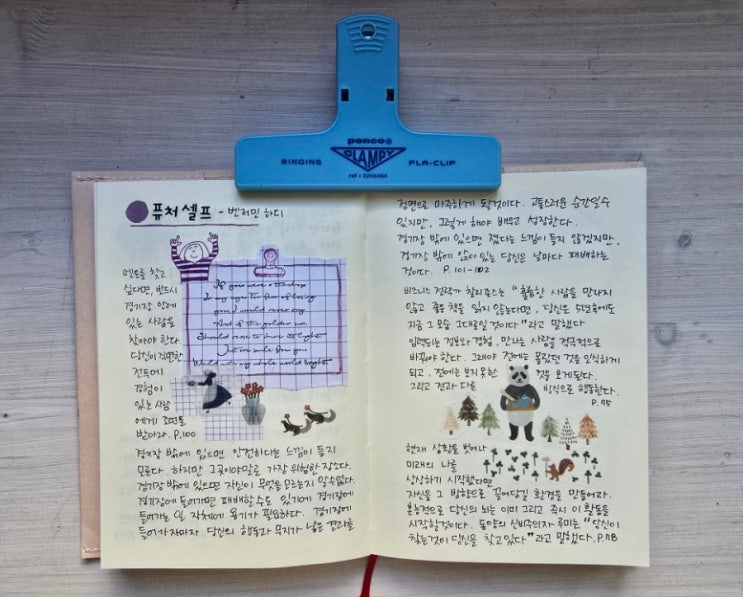 penco®
CLAMPY
BINDING
PLA-CLIP
ref # 3255464
퓨처 셀프 - 벤저민 하디
멘토를 찾고
싶다면, 반드시
경기장 안에
있는 사람을
찾아야 한다.
당신이 직면한
전투에
경험이
있는 사람
에게 조언을
받아라. P.100
If you were a teardrop
In my eye For fear of losing
you I would never cry
And if the golden sun
Should cease to shine its light
Just one smile from you
Would make my whole world bright
경기장 밖에 있으면 안전하다는 느낌이 들지
모른다. 하지만 그곳이야말로 가장 위험한 장소다.
경기장 밖에 있으면 자신이 무엇을 모르는지 알 수 없다.
경기장에 들어가면 패배할 수도 있기에 경기장에
들어가는 일 자체에 용기가 필요하다. 경기장에
들어가자마자 당신의 행동과 무지가 낳은 결과를
정면으로 마주하게 될것이다. 고통스러운 순간일수
있지만, 그렇게 해야 배우고 성장한다.
경기장 밖에 있으면 졌다는 느낌이 들지 않겠지만,
경기장 밖에 앉아 있는 당신은 날마다 패배하는
것이다. P.101-102
비즈니스 전략가 찰리존스는 "훌륭한 사람을 만나지
않고 좋은 책을 읽지 않는다면, 당신은 5년후에도
지금 그 모습 그대로일 것이다"라고 말했다
입력되는 정보와 경험, 만나는 사람을 적극적으로
바꿔야 한다. 그래야 전에는 몰랐던 것을 인식하게
되고, 전에는 보지 못한 것을 보게된다.
그리고 전과 다른 방식으로 행동한다.
P.115
현재 상황을 벗어나
미래의 나를
상상하기 시작했다면
자신을 그 방향으로 끌어당길 환경을 만들어라.
본능적으로 당신의 뇌는 이미 그리고 즉시 이 활동을
시작할것이다. 동양의 신비주의자 루미는 "당신이
찾는것이 당신을 찾고있다"라고 말했다. P.118